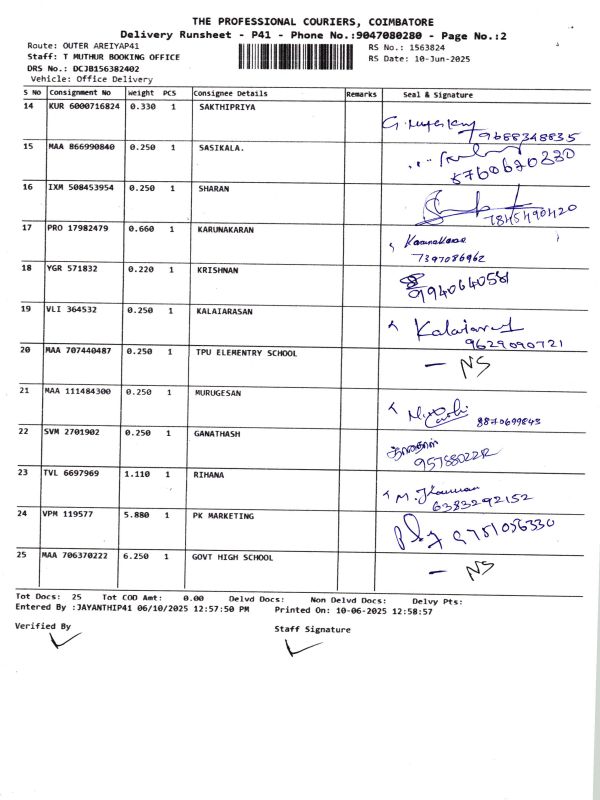 THE PROFESSIONAL COURIERS, COIMBATORE
Delivery Runsheet - P41 - Phone No.:9047080280 - Page No.:2
Route: OUTER AREIYAP41 RS No.: 1563824
Staff: T MUTHUR BOOKING OFFICE RS Date: 10-Jun-2025
DRS No.: DCJB156382402
Vehicle: Office Delivery
S No Consignment No Weight PCS Consignee Details Remarks Seal & Signature
14 KUR 6000716824 0.330 1 SAKTHIPRIYA
9688348835
15 MAA 866990840 0.250 1 SASIKALA.
8760670330
16 IXM 508453954 0.250 1 SHARAN
7845490420
17 PRO 17982479 0.660 1 KARUNAKARAN
7397086962
18 YGR 571832 0.220 1 KRISHNAN
9940640581
19 VLI 364532 0.250 1 KALAIARASAN
9629090721
20 MAA 707440487 0.250 1 TPU ELEMENTRY SCHOOL
— NS
21 MAA 111484300 0.250 1 MURUGESAN
8870699843
22 SVM 2701902 0.250 1 GANATHASH
23 TVL 6697969 1.110 1 RIHANA
6383292152
24 VPM 119577 5.880 1 PK MARKETING
9751056330
25 MAA 706370222 6.250 1 GOVT HIGH SCHOOL
— NS
Tot Docs: 25 Tot COD Amt: 0.00 Delvd Docs: Non Delvd Docs: Delvy Pts:
Entered By :JAYANTHIP41 06/10/2025 12:57:50 PM Printed On: 10-06-2025 12:58:57
Verified By Staff Signature